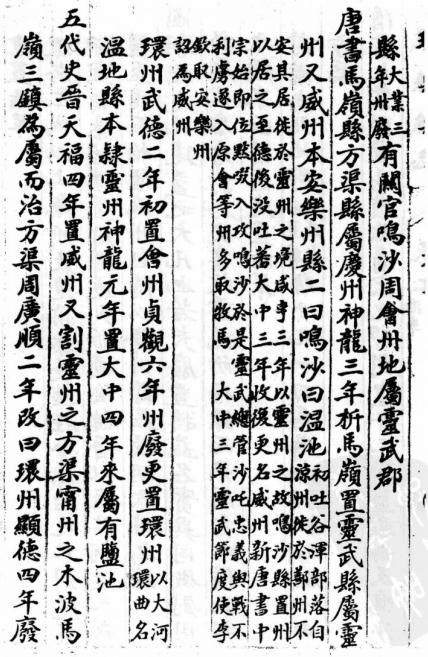 縣大業三年州廢有關官鳴沙周會州地屬靈武郡
唐書馬嶺縣方渠縣屬慶州神龍三年析馬嶺置靈武縣屬靈
州又威州本安樂州縣二曰鳴沙曰温池初吐谷渾部落自涼州徙於鄯州不
安其居徙於靈州之境咸亨三年以靈州之故鳴沙縣置州
以居之至德後没吐蕃大中三年收復更名威州新唐書中
宗始即位默啜入攻鳴沙於是靈武總管沙吒忠義與戰不
利虜遂入原會等州多取牧馬 大中三年靈武節度使李
欽取安樂州
詔為威州
環州武德二年初置會州貞觀六年州廢更置環州以大河環曲名
温地縣本隷靈州神龍元年置大中四年來屬有鹽池
五代史晉天福四年置威州又割靈州之方渠甯州之木波馬
嶺三鎮為屬而治方渠周廣順二年改曰環州顯德四年廢